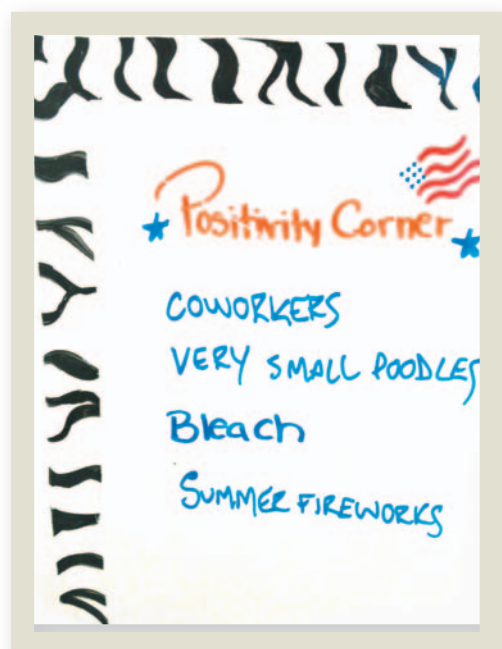 Positivity Corner
COWORKERS
VERY SMALL POODLES
Bleach
SUMMER FIREWORKS